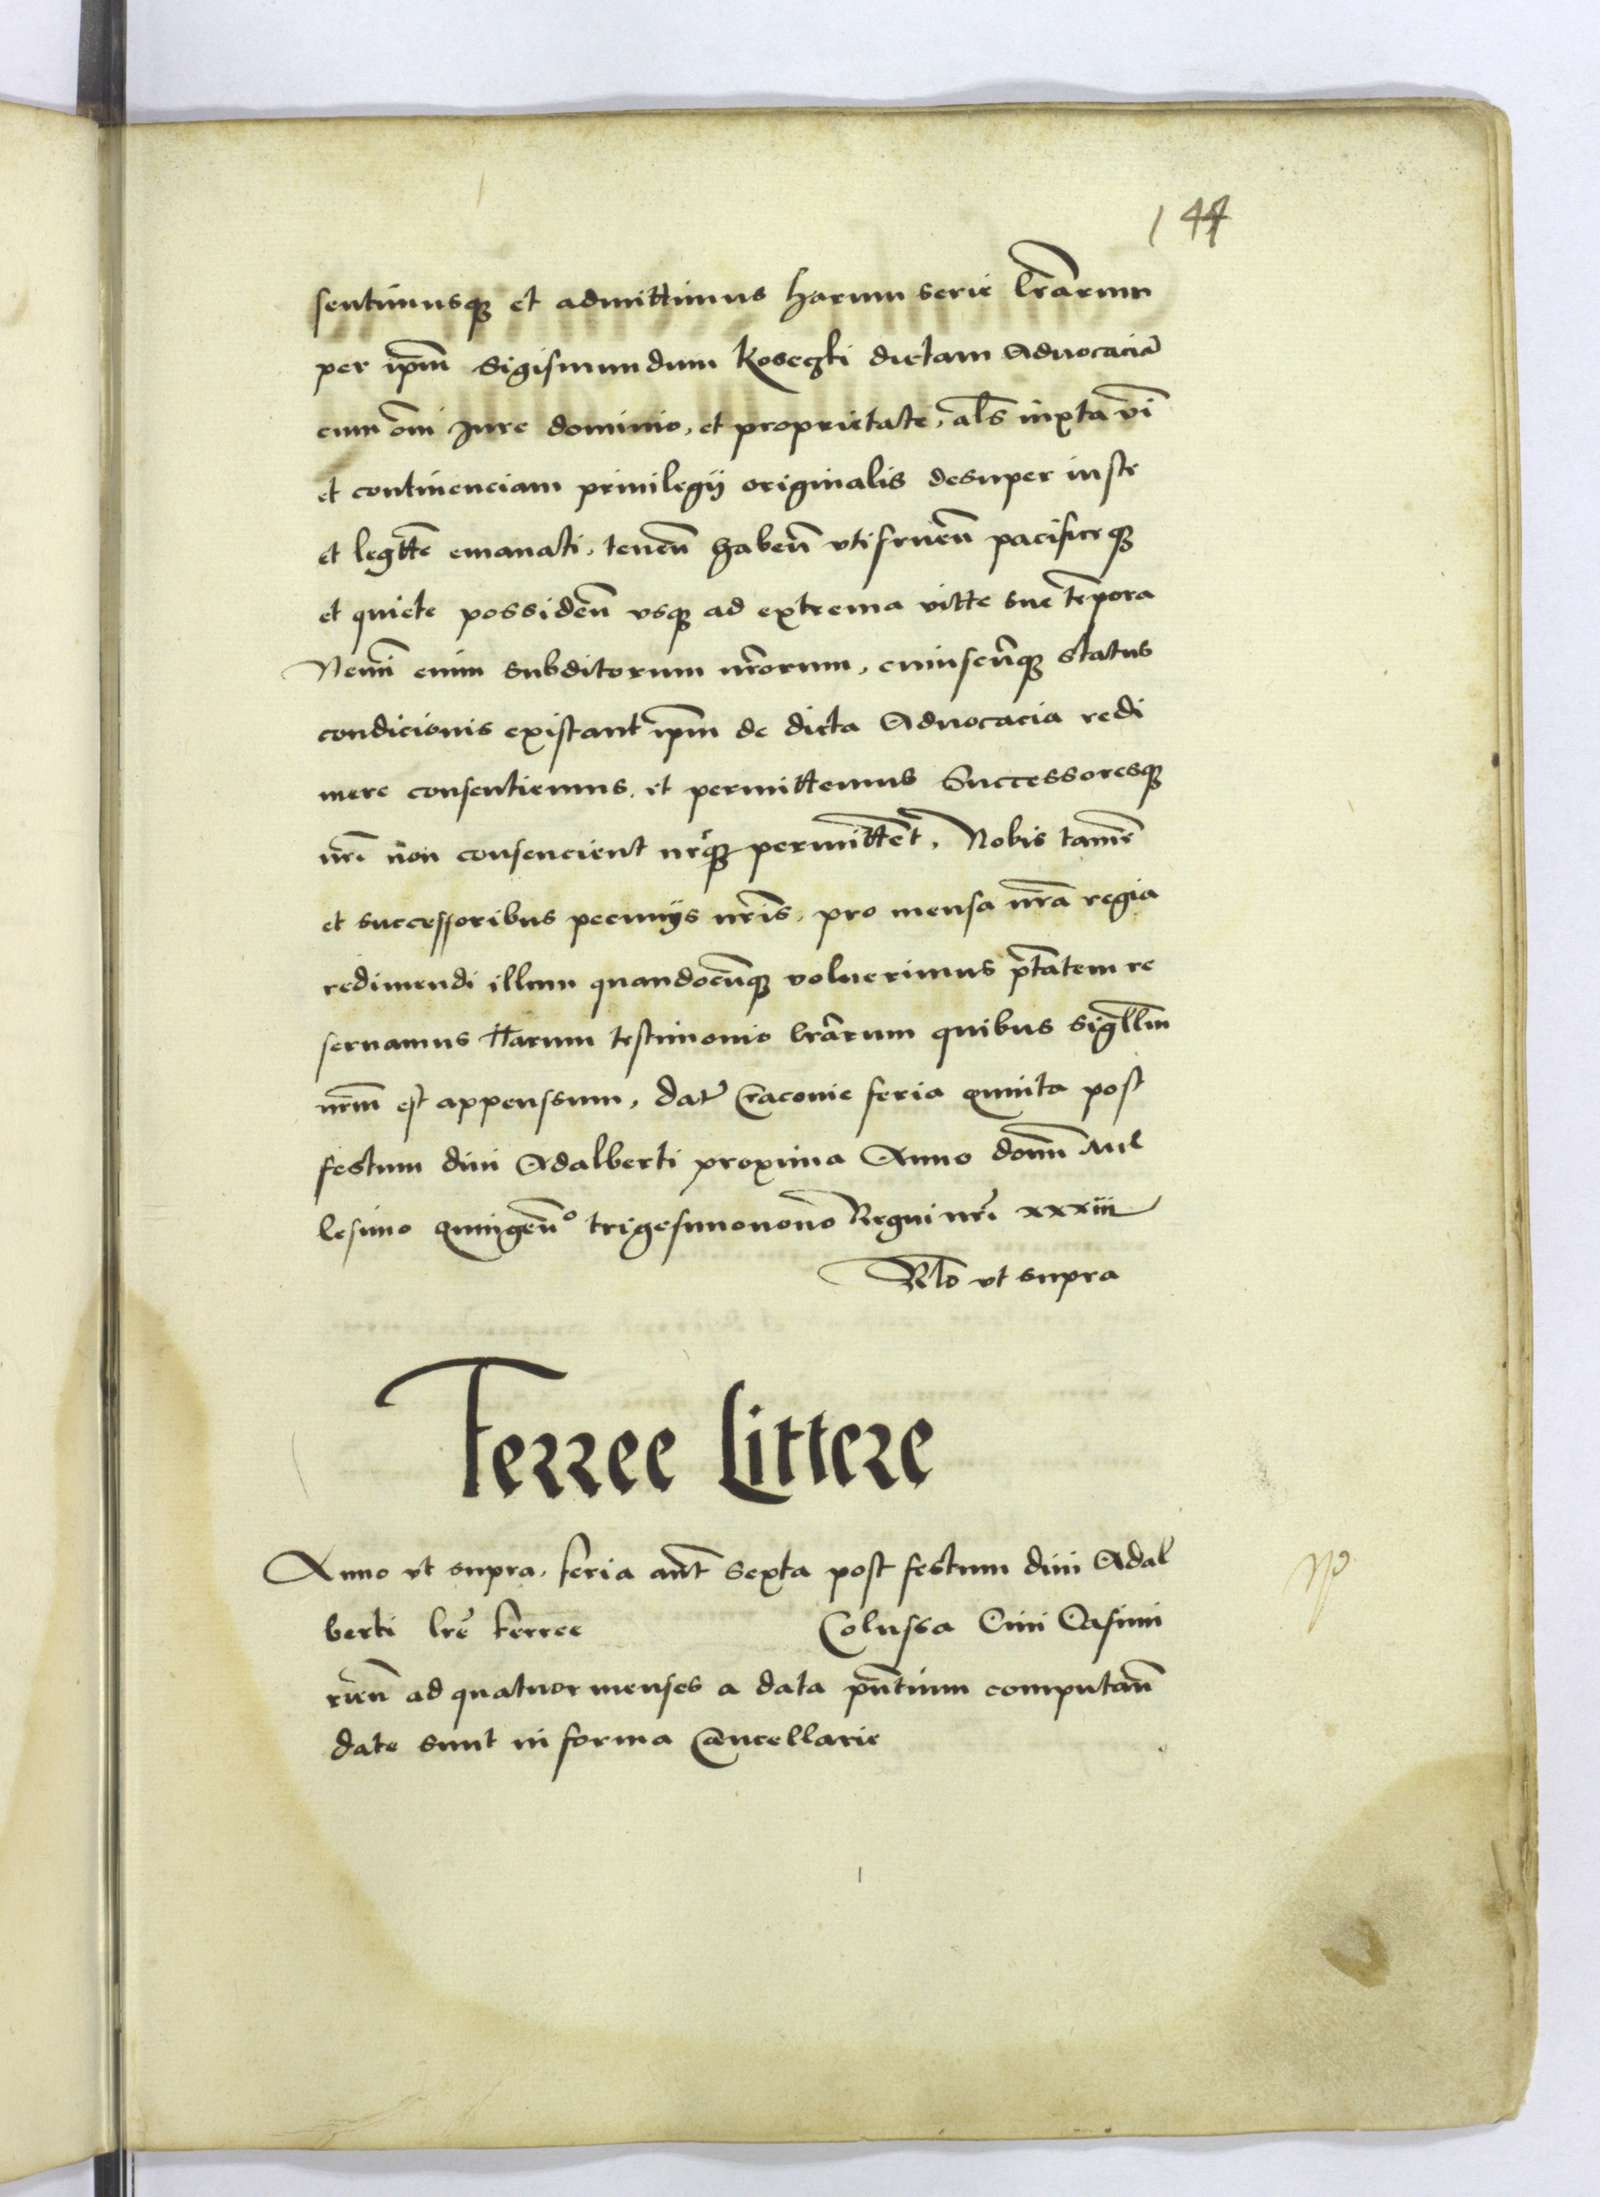 144
sentimusq3 et admittimus harum serie lr̃arum
per ip̃m Sigismundum Koseczki dictam Aduocaciã
cum om̃i Jure dominio, et proprietate, al̃s iuxta vim̃
et continenciam priuilegij originalis desuper iuste
et legitt̃e emanati, teneñ habeñ vtifrueñ pacificeq3
et quiete possideñ vsq3 ad extrema vitte sue tẽpora
Nemĩ enim subditorum nr̃orum, cuiuscũq3 status
condicionis existant ip̃m de dicta Aduocacia redi
mere consentiemus, et permittemus Successoresq3
nr̃i non consencient neq3 permittẽt, Nobis tamẽ
et successoribus pecunijs nr̃is, pro mensa nr̃a regia
redimendi illam quandocũq3 voluerimus p̃tatem re
seruamus Harum testimonio lr̃arum quibus sigillm̃
nr̃m est appenssum, dat̃ Cracouie feria quinta post
festum diui Adalberti proxima Anno domĩ Mil
lesimo quingeñ° trigesimonono Regni nr̃i xxxiii
Rl̃o vt supra
Ferree Littere
Anno vt supra, feria aũt sexta post festum diui Adal
berti lr̃e ferree Colussa Ciui Casimi
rieñ ad quatuor menses a data p̃ntium computañ
date sunt in forma Cancellarie